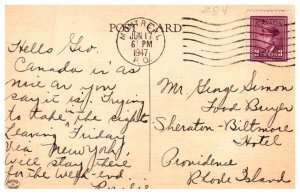 284
POST CARD
MONTREAL
JUN 17
6 PM
1947
P.Q.
Hello Geo.
Canada is as
nice as you
say it is. Trying
to take the sights
Leaving Friday
via New York,
will stay there
for the week-end.
Mr. George Simon
Food Buyer
Sheraton-Biltmore
Hotel
Providence
Rhode Island